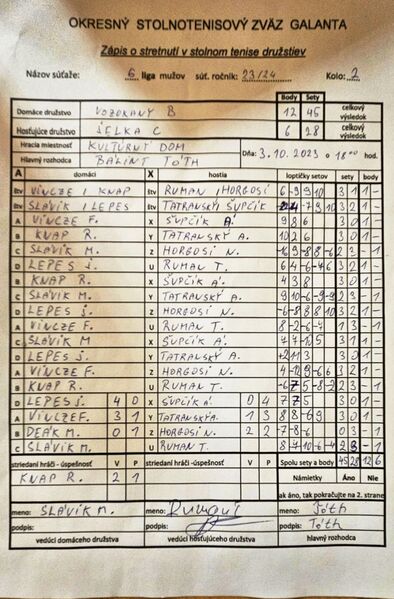 OKRESNÝ STOLNOTENISOVÝ ZVÄZ GALANTA
Zápis o stretnutí v stolnom tenise družstiev
Názov súťaže: 6 liga mužov súť. ročník: 23/24 Kolo: 2
Body Sety
Domáce družstvo VOZOKANY B 12 45 celkový výsledok
Hosťujúce družstvo JELKA C 6 28 celkový výsledok
Hracia miestnosť KULTÚRNY DOM Dňa: 3.10.2023 o 18 00 hod.
Hlavný rozhodca BÁLINT TÓTH
A domáci X hostia loptičky setov sety body
štv VINCZE / KNAP štv RUMAN / HORGOSI 6 -9 9 10 3 1 1 -
štv SLÁVIK / LEPES štv TATRANSKÝ / ŠUPČÍK 3 2 1 -
A VINCZE F. X ŠUPČÍK Á. 9 8 6 3 0 1 -
B KNAP R. Y TATRANSKÝ A. 10 2 6 3 0 1 -
C SLÁVIK M. Z HORGOSI N. 2 3 - 1
D LEPES J. U RUMAN T. 6 4 -6 -4 6 3 2 1 -
B KNAP R. X ŠUPČÍK Á. 4 3 8 3 0 1 -
C SLÁVIK M. Y TATRANSKÝ A. 9 10 -6 -9 -9 2 3 - 1
D LEPES J. Z HORGOSI N. -6 -8 8 8 10 3 2 1 -
A VINCZE F. U RUMAN T. 8 -2 -6 -7 1 3 - 1
C SLÁVIK M X ŠUPČÍK Á. 3 1 1 -
D LEPES J. Y TATRANSKÝ A. 3 0 1 -
A VINCZE F. Z HORGOSI N. 2 3 - 1
B KNAP R. U RUMAN T. -6 7 5 -8 -2 2 3 - 1
D LEPES J. 4 0 X ŠUPČÍK Á. 0 4 7 7 5 3 0 1 -
A VINCZE F. 3 1 Y TATRANSKÝ A. 1 3 8 8 -6 9 3 1 1 -
B DEÁK M. 0 1 Z HORGOSI N. 2 2 -7 -8 -6 0 3 - 1
C SLÁVIK M. U RUMAN T. 8 -7 10 -6 -4 2 3 - 1
striedaní hráči - úspešnosť V P striedaní hráči - úspešnosť V P Spolu sety a body 45 28 12 6
KNAP R. 2 1 Námietky Áno Nie
ak áno, tak pokračujte na 2. strane
meno: SLÁVIK M. meno: Ruman meno: Tóth
podpis: podpis: podpis: Tóth
vedúci domáceho družstva vedúci hosťujúceho družstva hlavný rozhodca